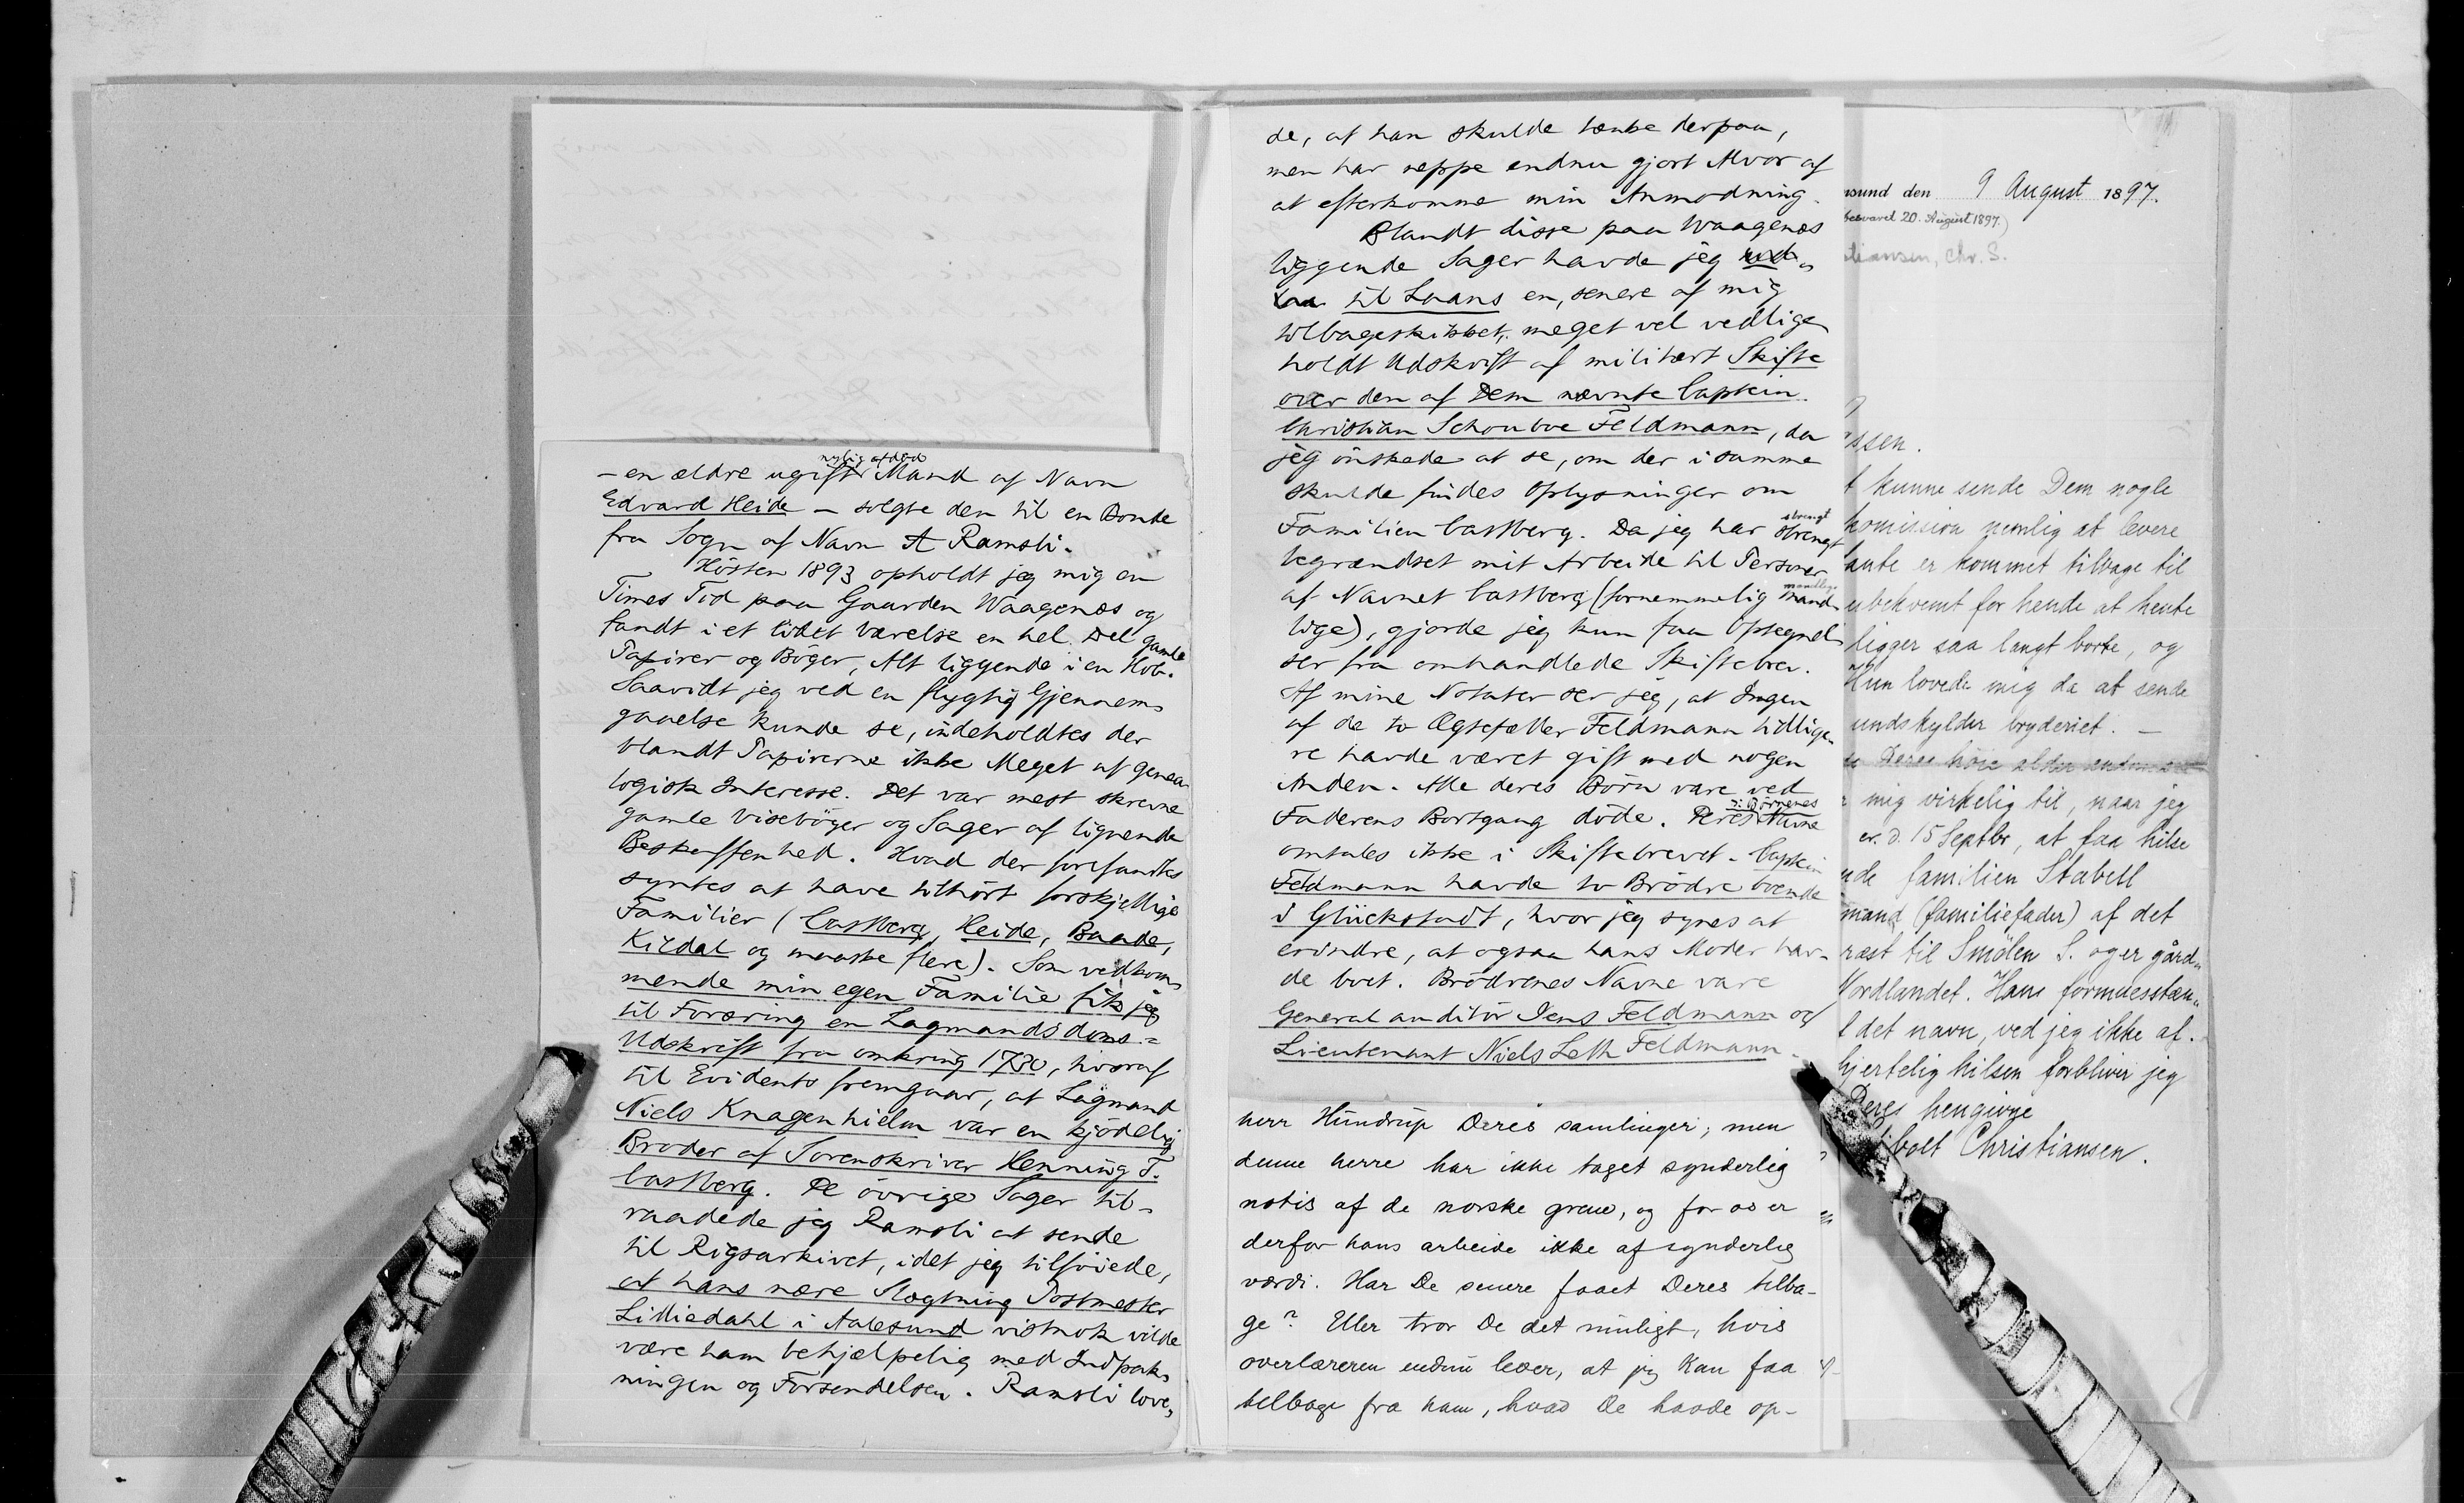 nylig afdød
– en ældre ugift Mand af Navn
Edvard Heide – solgte den til en Bonde
fra Sogn af Navn A Ramsli.
Hösten 1893 opholdt jeg mig en
Times Tid paa Gaarden Waagenæs og
fandt i et lidet Værelse en hel Del gamle
Papirer og Böger, Alt liggende i en Hob.
Saavidt jeg ved en flygtig Gjennem-
gaaelse kunde se, indeholdtes der
blandt Papirerne ikke Meget af genea-
logisk Interesse. Det var mest skrevne
gamle Visebøger og Sager af lignende
Beskaffenhed. Hvad der forefandtes
syntes at have tilhört forskjellige
Familier (Castberg, Heide, Baade,
Kildal og maaske flere). Som vedkom-
mende min egen Familie fik jeg
til Foræring en Lagmandsdoms-
Udskrift fra omkring 1730, hvoraf
til Evidents fremgaar, at Lagmand
Niels Knagenhielm var en kjödelig
Broder af Sorenskriver Henning T.
Castberg. De övrige Sager til-
raadede jeg Ramsli at sende
til Rigsarkivet, idet jeg tilföiede,
at hans nære Slægtning Postmester
Lilliedahl i Aalesund vistnok vilde
være ham behjælpelig med Indpak-
ningen og Forsendelsen. Ramsli love-
de, at han skulde tænke derpaa,
men har neppe endnu gjort Alvor af
at efterkomme min Anmodning.
Blandt disse paa Waagenæs
liggende Sager havde jeg
til Laans en, senere af mig
tilbageskikket, meget vel vedlige-
holdt Udskrift af militært Skifte
over den af Dem nævnte Captein
Christian Schouboe Feldmann, da
jeg önskede at se, om der i samme
skulde findes Oplysninger om
Familien Castberg. Da jeg har strengt
strengt
begrændset mit Arbeide til Personer
af Navnet Castberg (fornemmelig mand-
mandlige
lige), gjorde jeg kun faa Optegnel-
ser fra omhandlede Skiftebrev.
Af mine Notater ser jeg, at Ingen
af de to Ægtefæller Feldmann tidlige-
re havde været gift med nogen
Anden. Alle deres Börn vare ved
Faderens Bortgang döde. Deres Navne
ɔ: Börnenes
omtales ikke i Skiftebrevet. Captein
Feldmann havde to Brödre boende
i Glückstadt, hvor jeg synes at
erindre, at ogsaa hans Moder hav-
de boet. Brödrenes Navne vare
Generalauditör Jens Feldmann og
Lieutenant Niels Leth Feldmann.
herr Hundrup Deres samlinger; men
denne herre har ikke taget synderlig
notis af de norske grene, og for os er
derfor hans arbeide ikke af synderlig
værdi. Har De senere faaet Deres tilba-
ge? Eller tror De det muligt, hvis
overlæreren endnu lever, at jeg kan faa
tilbage fra ham, hvad De havde op-
sund den 9 August 1897.
besvaret 20. August 1897.)
tiansen, Chr. S.
ssen.
t kunne sende Dem nogle
komission nemlig at levere
tante er kommet tilbage til
ubekvemt for hende at hente
ligger saa langt borte, og
Hun lovede mig da at sende
undskylder bryderiet. –
Deres høie alder
mig virkelig til, naar jeg
er d. 15 Septbr, at faa hilse
nde familien Stabell
mand (familiefader) af det
ræst til Smölen S. og er gård-
Nordlandet. Hans formuesstæn-
l det navn, ved jeg ikke af.
hjertelig hilsen forbliver jeg
Deres hengivne
bolt Christiansen.